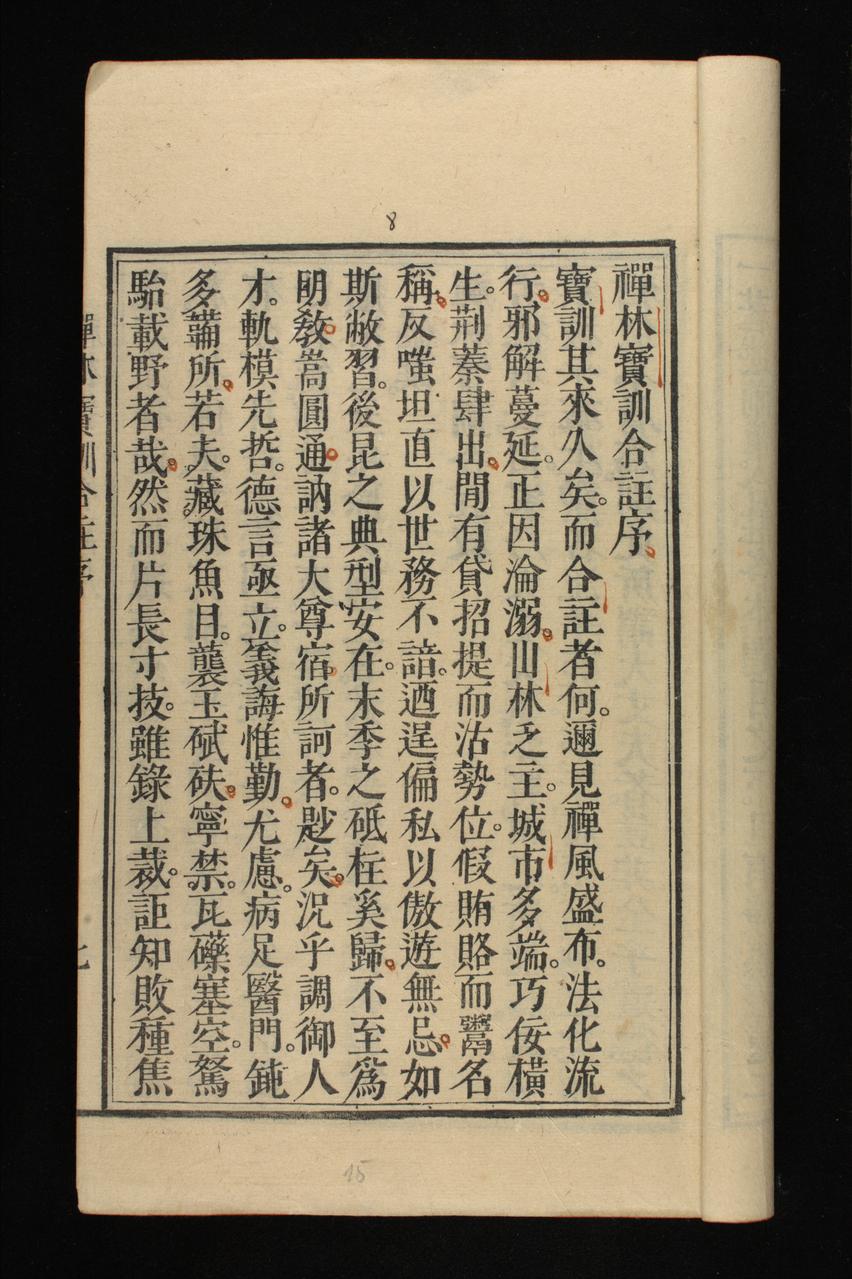 8
禪林寶訓合註序
寶訓其來久矣。而合註者何。邇見禪風盛布。法化流
行。邪解蔓延。正因淪溺。山林乏主。城市多端。巧佞橫
生。荆蓁肆出。閒有貸招提而沽勢位。假賄賂而鬻名
稱。反嗤坦直以世務不諳。迺逞偏私以傲遊無忌。如
斯敝習。後昆之典型安在。末季之砥柱奚歸。不至爲
明教嵩圓通訥諸大尊宿所訶者。尠矣。況乎調御人
才。軌模先哲。德言亟立。義誨惟勤。尤慮。病足醫門。鈍
多鞴所。若夫。藏珠魚目。襲玉碔砆。寧禁。瓦礫塞空。駑
駘載野者哉。然而片長寸技。雖錄上裁。詎知敗種焦
禪林寶訓合註序
15